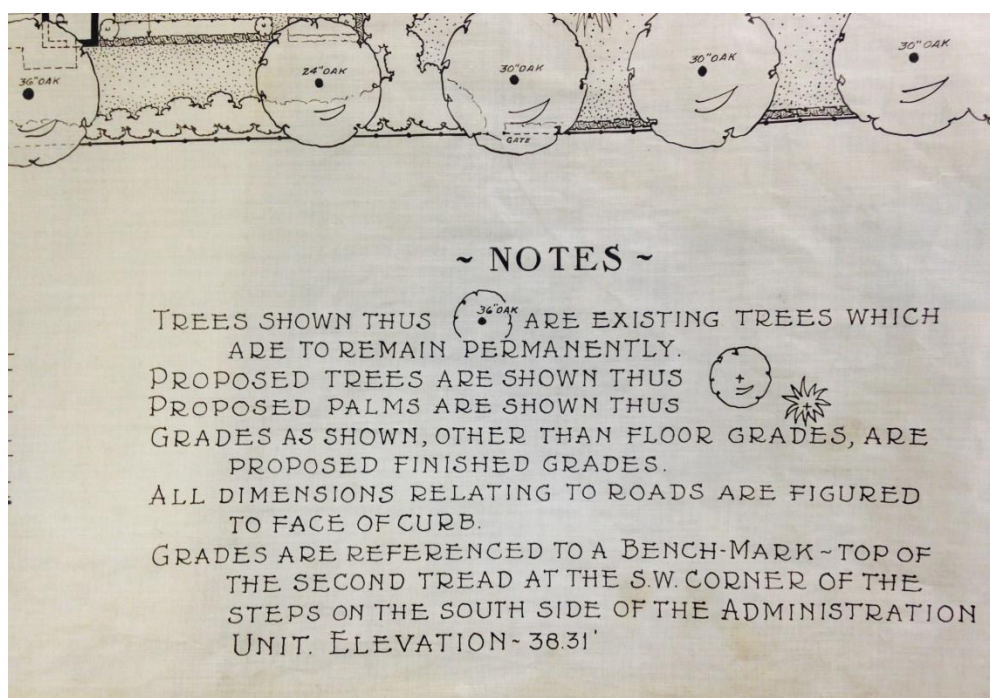 36"OAK
24"OAK
30"OAK
30"OAK
30"OAK
GATE
~ NOTES ~
TREES SHOWN THUS 36"OAK ARE EXISTING TREES WHICH
ARE TO REMAIN PERMANENTLY.
PROPOSED TREES ARE SHOWN THUS
PROPOSED PALMS ARE SHOWN THUS
GRADES AS SHOWN, OTHER THAN FLOOR GRADES, ARE
PROPOSED FINISHED GRADES.
ALL DIMENSIONS RELATING TO ROADS ARE FIGURED
TO FACE OF CURB.
GRADES ARE REFERENCED TO A BENCH-MARK ~ TOP OF
THE SECOND TREAD AT THE S.W. CORNER OF THE
STEPS ON THE SOUTH SIDE OF THE ADMINISTRATION
UNIT. ELEVATION ~ 38.31'